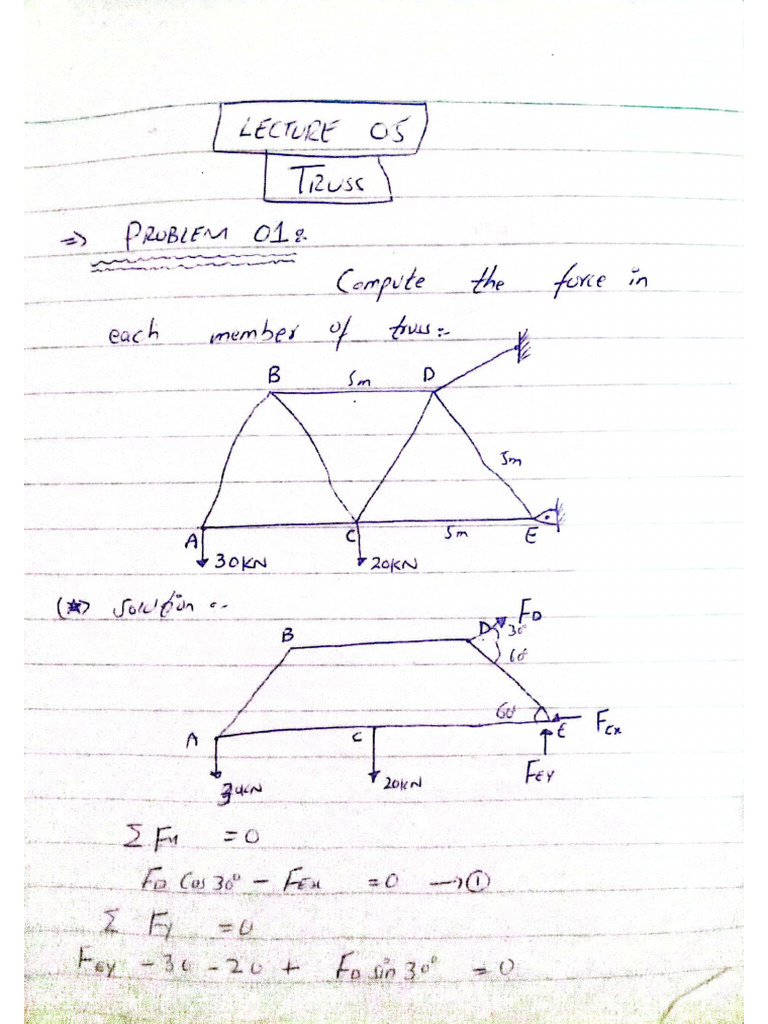 LECTURE 05
TRUSS
=> PROBLEM 01:
Compute the force in
each member of truss:-
B 5m D
5m
A C 5m E
30KN 20KN
(*) Solution :-
B D FD
30°
60°
60°
A C E FEx
FEY
30KN 20KN
Σ Fx = 0
FD Cos30° - FEx = 0 → ①
Σ Fy = 0
FEY - 30 - 20 + FD sin30° = 0